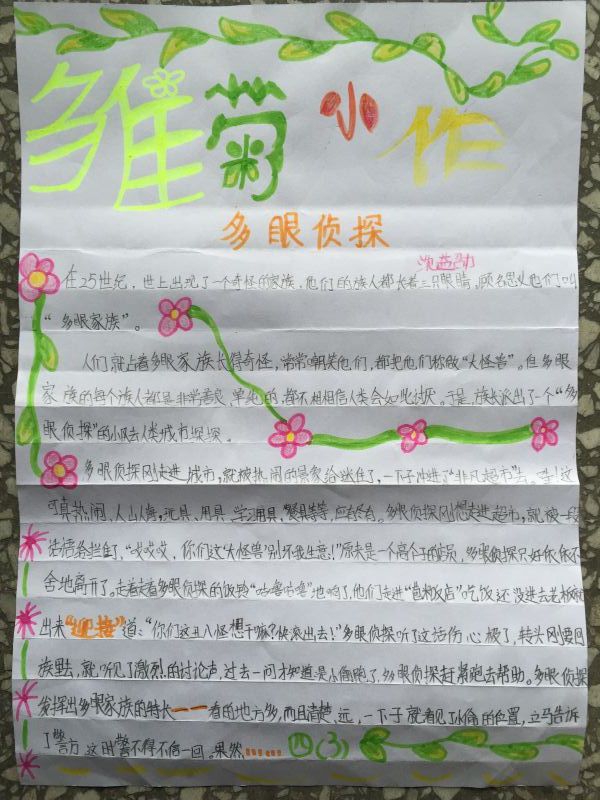 雏菊小作
多眼侦探
在25世纪，世上出现了一个奇怪的家族，他们的族人都长着三只眼睛，顾名思义他们叫
“多眼家族”。
人们就占着多眼家族长得奇怪，常常嘲笑他们，都把他们称做“大怪兽”。但多眼
家族的每个族人都是非常善良、单纯的，都不想相信人类会如此讨厌。于是，族长派出了一个“多
眼侦探”的小队去人类城市探探。
多眼侦探刚走进城市，就被热闹的景象给迷住了，一下子冲进了“非凡超市”去。哇！这
可真热闹，人山人海，玩具、用具、学习用具、餐具等等，应有尽有。多眼侦探刚想走进超市，就被一段
话语给拦住了，“哎哎哎，你们这“大怪兽”别坏我生意！”原来是一个高个子的店员，多眼侦探只好依依不
舍地离开了。走着走着多眼侦探的饭铃“咕噜咕噜”地响了，他们走进“饭店”吃饭，还没进去老板就
出来“迎接”道：“你们这丑八怪想干嘛？快滚出去！”多眼侦探听了这话伤心极了，转头刚要回
族里去，就听见了激烈的讨论声，过去一问才知道是小偷跑了，多眼侦探赶紧跑去帮助。多眼侦探
发挥出多眼家族的特长——看的地方多，而且清楚、远，一下子就看见了小偷的位置，立马告诉
了警方，这时警不得不信一回。果然……
四(3)